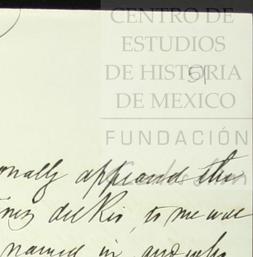 CENTRO DE
ESTUDIOS
DE HISTORIA
DE MEXICO
FUNDACIÓN
51
onally appeared the
del Rio, to me well
named in, and who